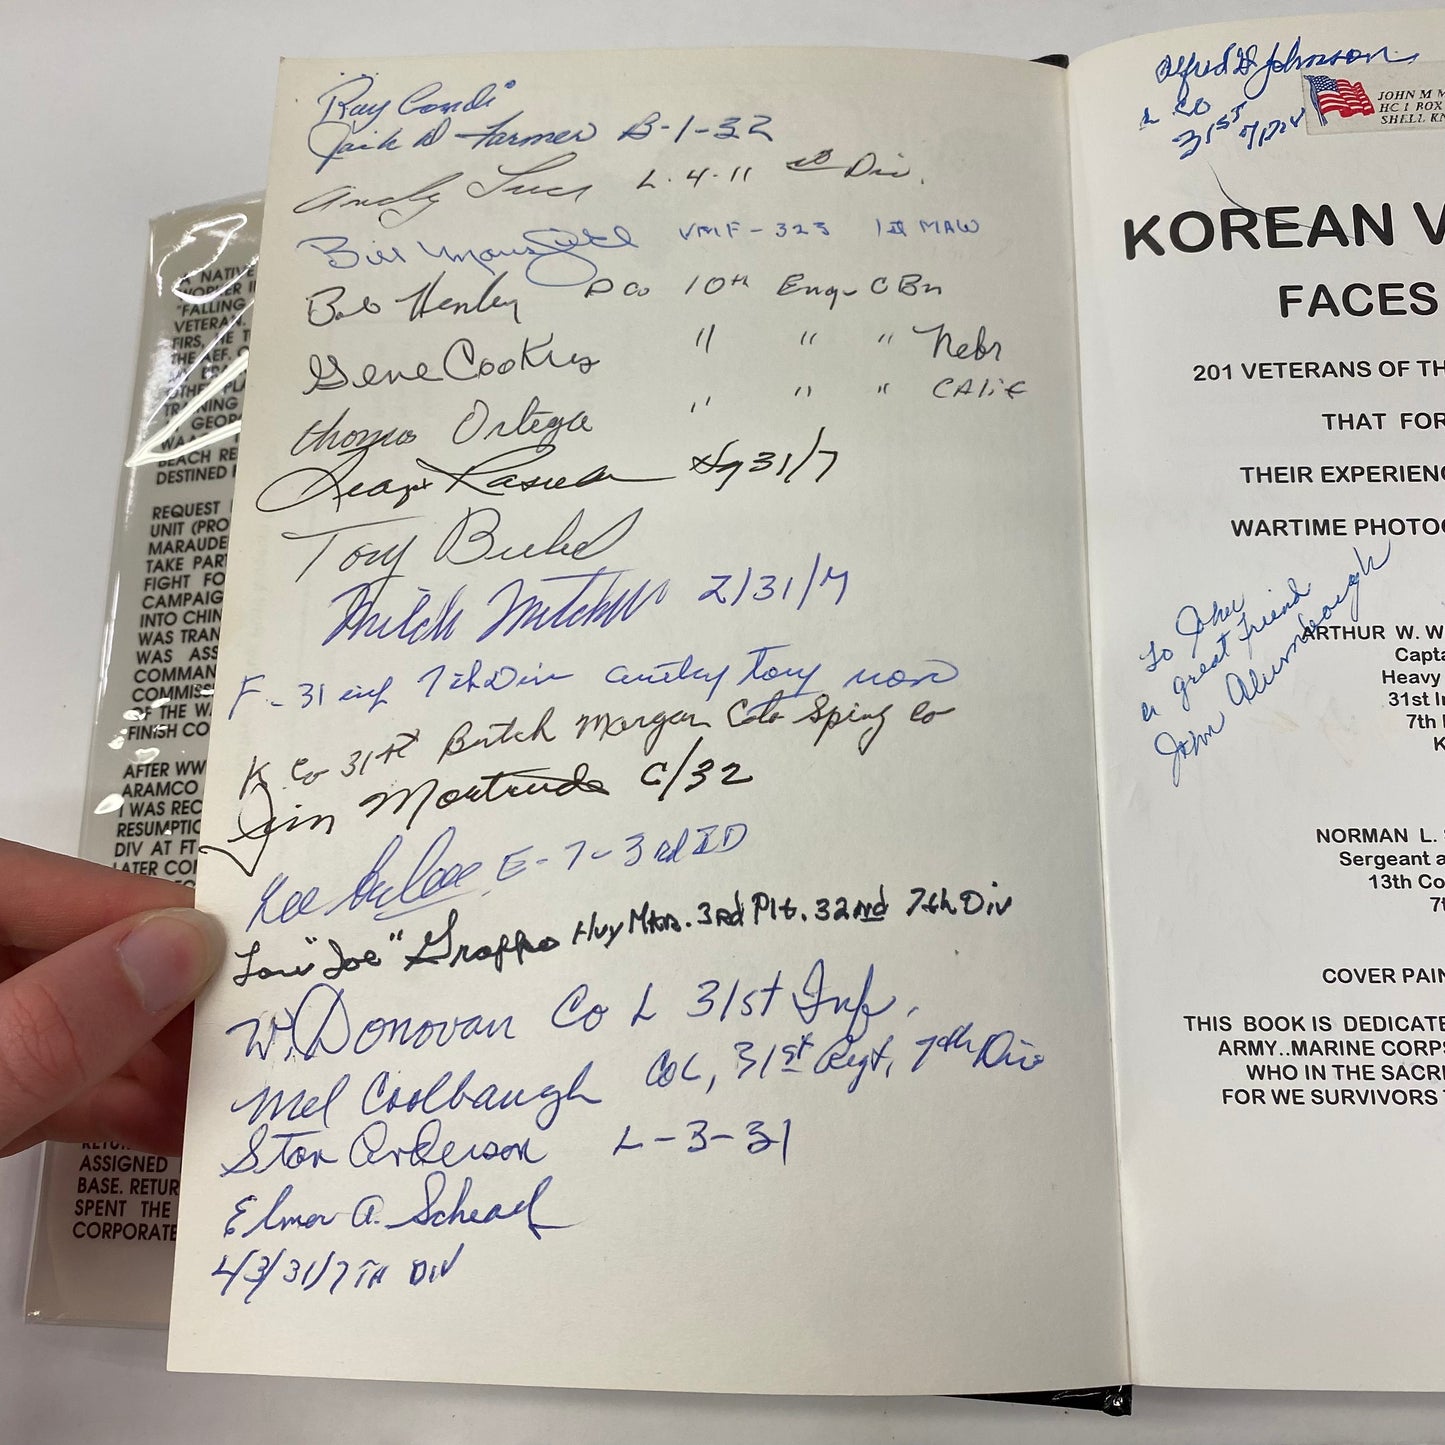 A NATIVE
WORKER I
"FALLING
VETERAN.
FIRS, HE T
THE AEF. O
OTHER PLA
TRAINING
GEOR
BEACH RE
DESTINED
REQUEST
UNIT (PRO
MARAUDE
TAKE PAR
FIGHT FO
CAMPAIG
INTO CHIN
WAS TRAN
WAS ASS
COMMAN
COMMISS
OF THE W
FINISH CO
AFTER WW
ARAMCO
I WAS REC
RESUMPTIO
DIV AT FT
LATER CO
ASSIGNED
BASE. RETUR
SPENT THE
CORPORATE
Ray Condi
Jack D Farmer B-1-32
Andy L-4-11 Div.
Bill VMF-323 1st MAW
Bob Henley D Co 10th Engr C Bn
Gene " " " Nebr
Thomas Ortega " " " CALif
Hq 31/7
Tony
Mitch 2/31/7
F-31 inf 7th Div
K Co 31st Butch Morgan Spring Co
Jim C/32
E-7-3rd ID
"Joe" Groppo Hvy Mtr. 3rd Plt. 32nd 7th Div
W. Donovan Co L 31st Inf.
Mel Coolbaugh Co L, 31st Regt, 7th Div
Stan Anderson L-3-31
Elmer A.
L/3/31/7TH DIV
Alfred Johnson
L Co
31ST 7 DIV
JOHN M M
HC 1 BOX
SHELL KN
KOREAN V
FACES
201 VETERANS OF TH
THAT FOR
THEIR EXPERIENC
WARTIME PHOTOG
To John
a great friend
John
ARTHUR W. W
Capta
Heavy
31st In
7th
K
NORMAN L.
Sergeant a
13th Co
7t
COVER PAIN
THIS BOOK IS DEDICATE
ARMY..MARINE CORPS
WHO IN THE SACRI
FOR WE SURVIVORS T